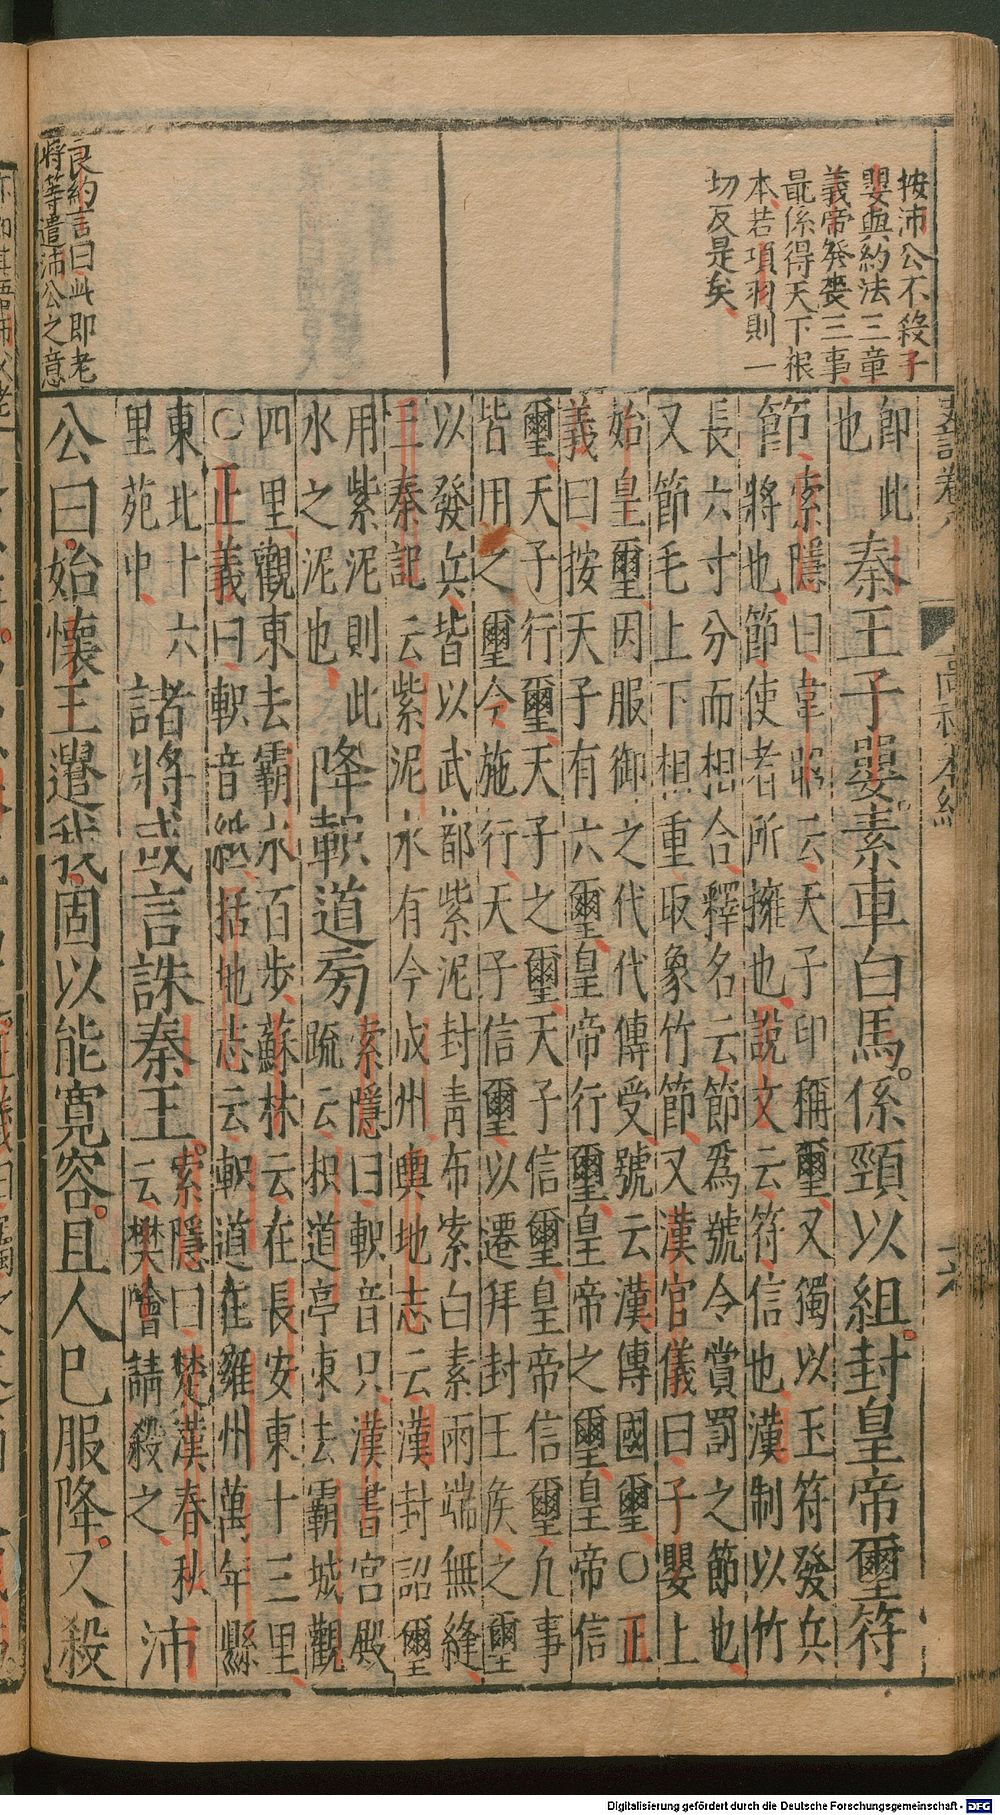 按沛公不殺子
嬰與約法三章
義帝發喪三事
最係得天下根
本若項羽則一
切反是矣
良約言曰此即老
將等遣沛公之意
史記卷八 高祖本紀
即此
也
秦王子嬰素車白馬。係頸以組。封皇帝璽符
節
索隱曰韋昭云天子印稱璽又獨以玉符發兵
將也節使者所擁也說文云符信也漢制以竹
長六寸分而相合釋名云節為號令賞罰之節也
又節毛上下相重取象竹節又漢官儀曰子嬰上
始皇璽因服御之代代傳受號云漢傳國璽○正
義曰按天子有六璽皇帝行璽皇帝之璽皇帝信
璽天子行璽天子之璽天子信璽皇帝信璽凡事
皆用之璽令施行天子信璽以遷拜封王侯之璽
以發兵皆以武都紫泥封青布索白素兩端無縫
三秦記云紫泥水有今成州輿地志云漢封詔璽
用紫泥則此
水之泥也
降軹道旁
索隱曰軹音只漢書宮殿
疏云枳道亭東去霸城觀
四里觀東去霸水百步蘇林云在長安東十三里
○正義曰軹音紙括地志云軹道在雍州萬年縣
東北十六
里苑中
諸將或言誅秦王。
索隱曰楚漢春秋
云樊噲請殺之
沛
公曰始懷王遣我固以能寬容。且人已服降。又殺
Digitalisierung gefördert durch die Deutsche Forschungsgemeinschaft - DFG